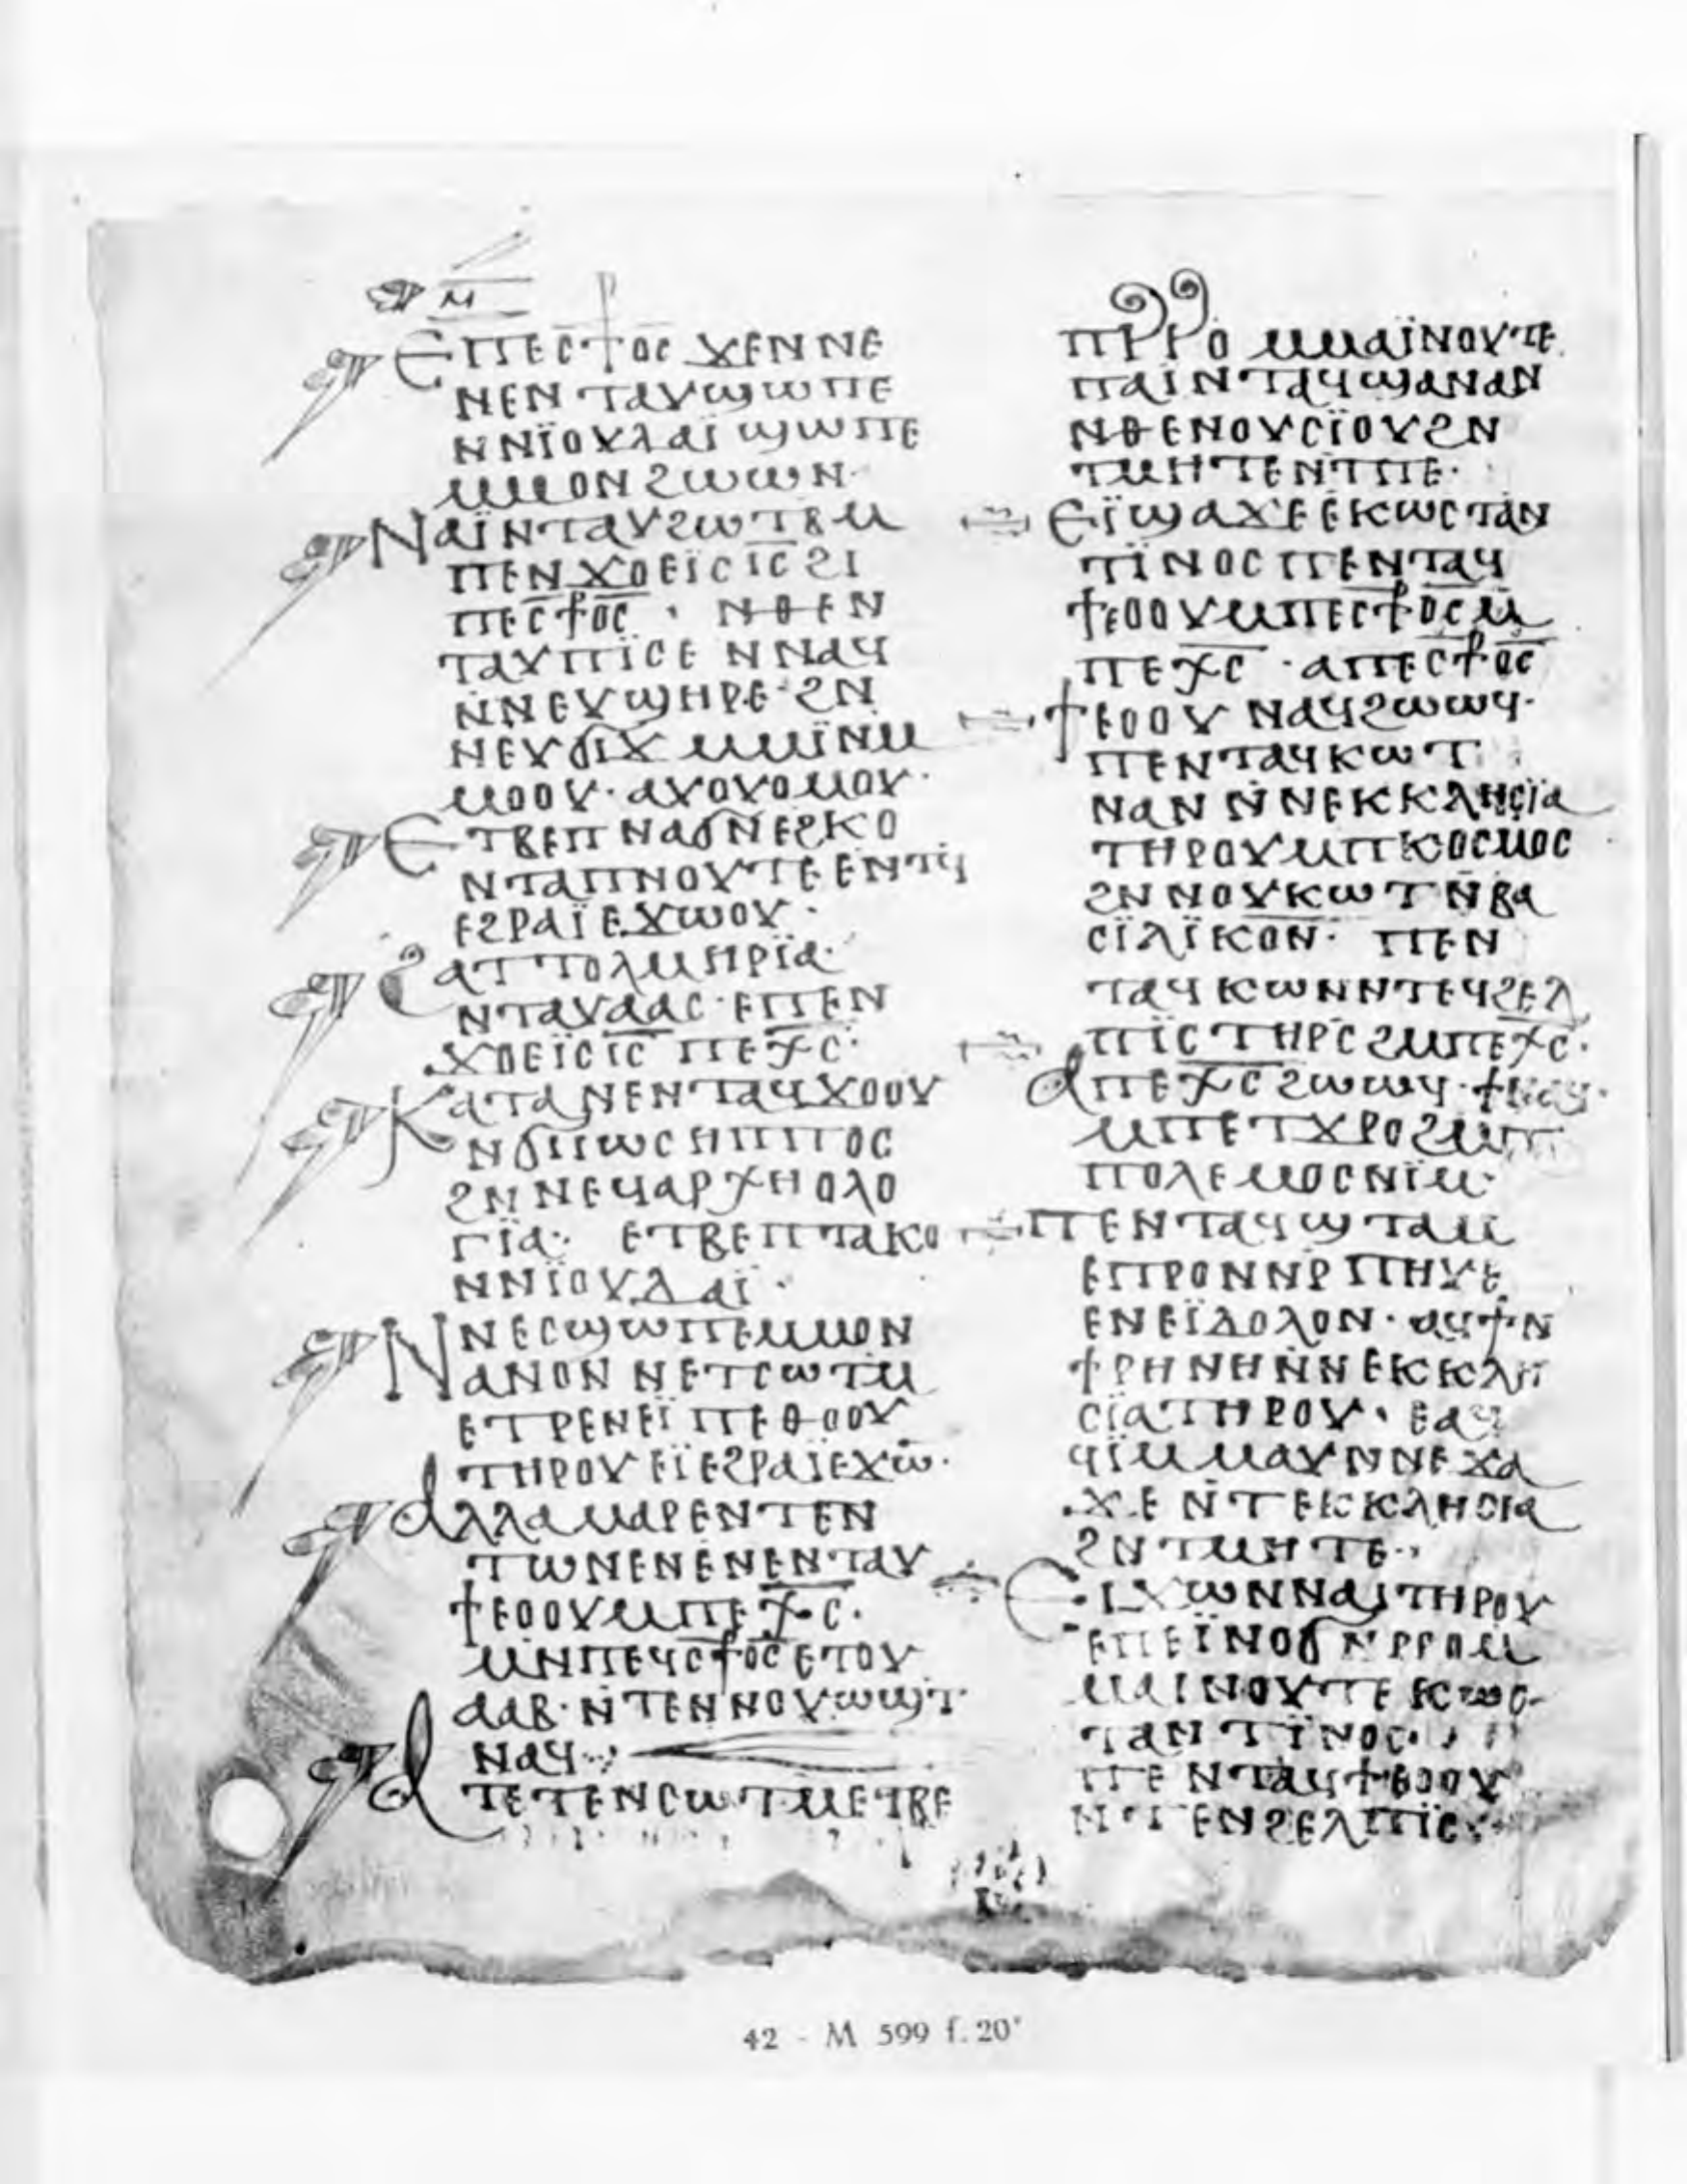 ⲙ
ⲉⲡⲉⲥ⳨ⲟⲥ ϫⲉⲛⲛⲉ
ⲛⲉⲛⲧⲁⲩϣⲱⲡⲉ
ⲛⲛⲓ̈ⲟⲩⲇⲁⲓ̈ ϣⲱⲡⲉ
ⲙⲙⲟⲛϩⲱⲱⲛ·
ⲛⲁⲓ̈ⲛⲧⲁⲩϩⲱⲧⲃⲙ
ⲡⲉⲛϫⲟⲉⲓ̈ⲥⲓ̅ⲥ̅ϩⲓ
ⲡⲉⲥ⳨ⲟⲥ · ⲛⲑⲉⲛ
ⲧⲁⲩⲡⲓ̈ⲥⲉ ⲛⲛⲁϥ
ⲛⲛⲉⲩϣⲏⲣⲉ·ϩⲛ
ⲛⲉⲩϭⲓϫ ⲙⲙⲓ̈ⲛⲙ
ⲙⲟⲟⲩ·ⲁⲩⲟⲩⲟⲙⲟⲩ·
ⲉⲧⲃⲉⲡⲛⲁϭⲛⲉϩⲕⲟ
ⲛⲧⲁⲡⲛⲟⲩⲧⲉⲉⲛⲧϥ
ⲉϩⲣⲁⲓ̈ⲉϫⲱⲟⲩ·
ϩⲁⲧⲧⲟⲗⲙⲏⲣⲓ̈ⲁ·
ⲛⲧⲁⲩⲁⲁⲥ·ⲉⲡⲉⲛ
ϫⲟⲉⲓ̈ⲥⲓ̅ⲥ̅ ⲡⲉⲭ̅ⲥ̅·
ⲕⲁⲧⲁⲛⲉⲛⲧⲁϥϫⲟⲟⲩ
ⲛϭⲓⲓⲱⲥⲏⲡⲡⲟⲥ
ϩⲛⲛⲉϥⲁⲣⲭⲏⲟⲗⲟ
ⲅⲓ̈ⲁ· ⲉⲧⲃⲉⲡⲧⲁⲕⲟ
ⲛⲛⲓ̈ⲟⲩⲇⲁⲓ̈·
ⲛⲛⲉⲥϣⲱⲡⲉⲙⲙⲟⲛ
ⲁⲛⲟⲛ ⲛⲉⲧⲥⲱⲧⲙ
ⲉⲧⲣⲉⲛⲉⲓ̈ ⲡⲉⲑⲟⲟⲩ
ⲧⲏⲣⲟⲩⲉⲓ̈ⲉϩⲣⲁⲓ̈ⲉϫⲱ̅·
ⲁⲗⲗⲁⲙⲁⲣⲉⲛⲧⲉⲛ
ⲧⲱⲛⲉⲛⲉⲛⲉⲛⲧⲁⲩ
ϯⲉⲟⲟⲩⲙⲡⲉⲭ̅ⲥ̅·
ⲙⲛⲡⲉϥⲥ⳨ⲟⲥⲉⲧⲟⲩ
ⲁⲁⲃ·ⲛⲧⲉⲛⲛⲟⲩⲱϣⲧ·
ⲛⲁϥ·
ⲁⲧⲉⲧⲉⲛⲥⲱⲧⲙⲉⲧⲃⲉ
ⲡⲣⲣⲟ ⲙⲙⲁⲓ̈ⲛⲟⲩⲧⲉ
ⲡⲁⲓ̈ⲛⲧⲁϥϣⲁⲛⲁⲛ
ⲛⲑⲉⲛⲟⲩⲥⲓ̈ⲟⲩϩⲛ
ⲧⲙⲏⲧⲉⲛⲧⲡⲉ·
ⲉⲓ̈ϣⲁϫⲉⲉⲕⲱⲥⲧⲁⲛ
ⲧⲓ̈ⲛⲟⲥⲡⲉⲛⲧⲁϥ
ϯⲉⲟⲟⲩⲙⲡⲉⲥ⳨ⲟⲥⲙ
ⲡⲉⲭ̅ⲥ̅·ⲁⲡⲉⲥ⳨ⲟⲥ
ϯⲉⲟⲟⲩ ⲛⲁϥϩⲱⲱϥ·
ⲡⲉⲛⲧⲁϥⲕⲱⲧ
ⲛⲁⲛ ⲛⲛⲉⲕⲕⲗⲏⲥⲓ̈ⲁ
ⲧⲏⲣⲟⲩⲙⲡⲕⲟⲥⲙⲟⲥ
ϩⲛⲛⲟⲩⲕⲱⲧⲛⲃⲁ
ⲥⲓ̈ⲗⲓ̈ⲕⲟⲛ· ⲡⲉⲛ
ⲧⲁϥⲕⲱⲛⲛⲧⲉϥϩⲉⲗ
ⲡⲓ̈ⲥⲧⲏⲣⲥϩⲙⲡⲉⲭ̅ⲥ̅·
ⲁⲡⲉⲭ̅ⲥ̅ϩⲱⲱϥ·ϯⲛⲁϥ·
ⲙⲡⲉⲧϫⲣⲟϩⲙ
ⲡⲟⲗⲉⲙⲟⲥⲛⲓ̈ⲙ·
ⲡⲉⲛⲧⲁϥϣⲧⲁⲙ
ⲉⲡⲣⲟⲛⲛⲣⲡⲏⲩⲉ
ⲉⲛⲉⲓ̈ⲇⲟⲗⲟⲛ·ⲁϥϯⲛ
ϯⲣⲏⲛⲏⲛⲛⲉⲕⲕⲗⲏ
ⲥⲓ̈ⲁⲧⲏⲣⲟⲩ·ⲉⲁϥ
ϥⲓ̈ⲙⲙⲁⲩⲛⲛⲉϫⲁ
ϫⲉⲛⲧⲉⲕⲕⲗⲏⲥⲓⲁ
ϩⲛⲧⲙⲏⲧⲉ·
ⲉⲓϫⲱⲛⲛⲁⲓⲧⲏⲣⲟⲩ
ⲉⲡⲉⲓ̈ⲛⲟϭⲛⲣⲣⲟⲙ
ⲙⲁⲓⲛⲟⲩⲧⲉⲕⲱⲥ
ⲧⲁⲛⲧⲓ̈ⲛⲟⲥ·
ⲡⲉⲛⲧⲁϥϯⲉⲟⲟⲩ
ⲛⲧⲉⲛϩⲉⲗⲡⲓ̈ⲥ
42 - M 599 f. 20ᵛ